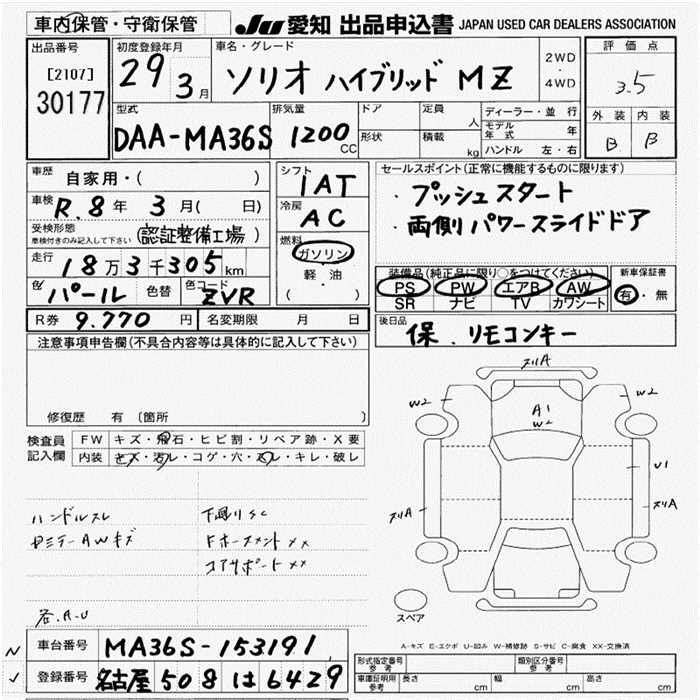 車内保管・守衛保管
JU 愛知 出品申込書 JAPAN USED CAR DEALERS ASSOCIATION
出品番号
[2107]
30177
初度登録年月
29 3月
車名・グレード
ソリオ ハイブリッド MZ
2WD
4WD
評価点
3.5
外装 内装
B B
型式
DAA-MA36S
排気量
1200 CC
ドア
形状
定員 人
積載 kg
ディーラー・並行
モデル年式 年
ハンドル 左・右
車歴 自家用・( )
車検 R.8年 3月( 日)
受検形態
車検付きのみ記入して下さい (認証整備工場)
走行 18万3千305km
色 パール 色替 色コード ZVR
シフト
IAT
冷房
AC
燃料
ガソリン
軽・油
( )
セールスポイント(正常に機能するものに限ります)
・プッシュスタート
・両側パワースライドドア
装備品(純正品に限り○をつけてください)
PS PW エアB AW
SR ナビ TV カワシート
新車保証書
有・無
R券 9.770円 名変期限 月 日
後日品
保.リモコンキー
注意事項申告欄(不具合内容等は具体的に記入して下さい)
修復歴 有 (箇所
検査員記入欄
FW キズ・飛石・ヒビ割・リペア跡・X要
内装 キズ・汚レ・コゲ・穴・スレ・キレ・破レ
ハンドルスレ
下廻りSC
コアサポートXX
各.A-U
ヌリA
W2
W2
A1
W2
U1
ヌリA
ヌリA
スペア
A-キズ E-エクボ U-凹み W-補修跡 S-サビ C-腐食 XX-交換済
車台番号 MA36S-153191
登録番号 名古屋 508 は 6429
形式指定番号 参考
類別区分番号 参考
車庫証明用 参考 長さ cm 幅 cm 高さ cm